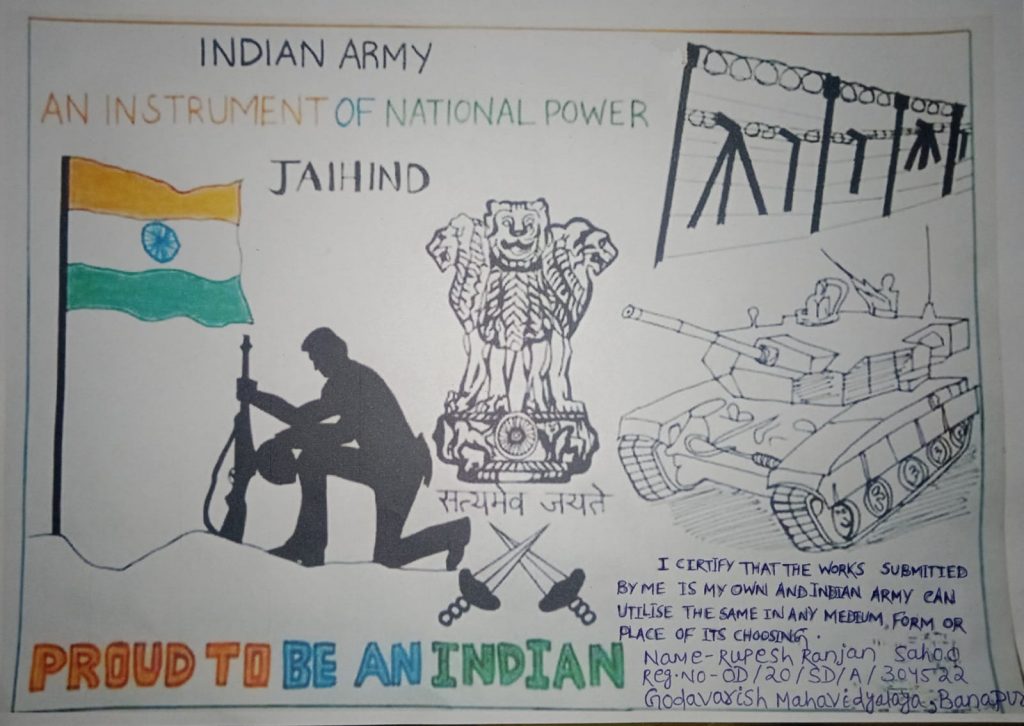 INDIAN ARMY
AN INSTRUMENT OF NATIONAL POWER
JAIHIND
सत्यमेव जयते
I CIRTIFY THAT THE WORKS SUBMITTED
BY ME IS MY OWN AND INDIAN ARMY CAN
UTILISE THE SAME IN ANY MEDIUM, FORM OR
PLACE OF ITS CHOOSING.
Name-Rupesh Ranjan Sahoo
Reg.No-OD/20/SD/A/304522
Godavarish Mahavidyalaya, Banapur
PROUD TO BE AN INDIAN